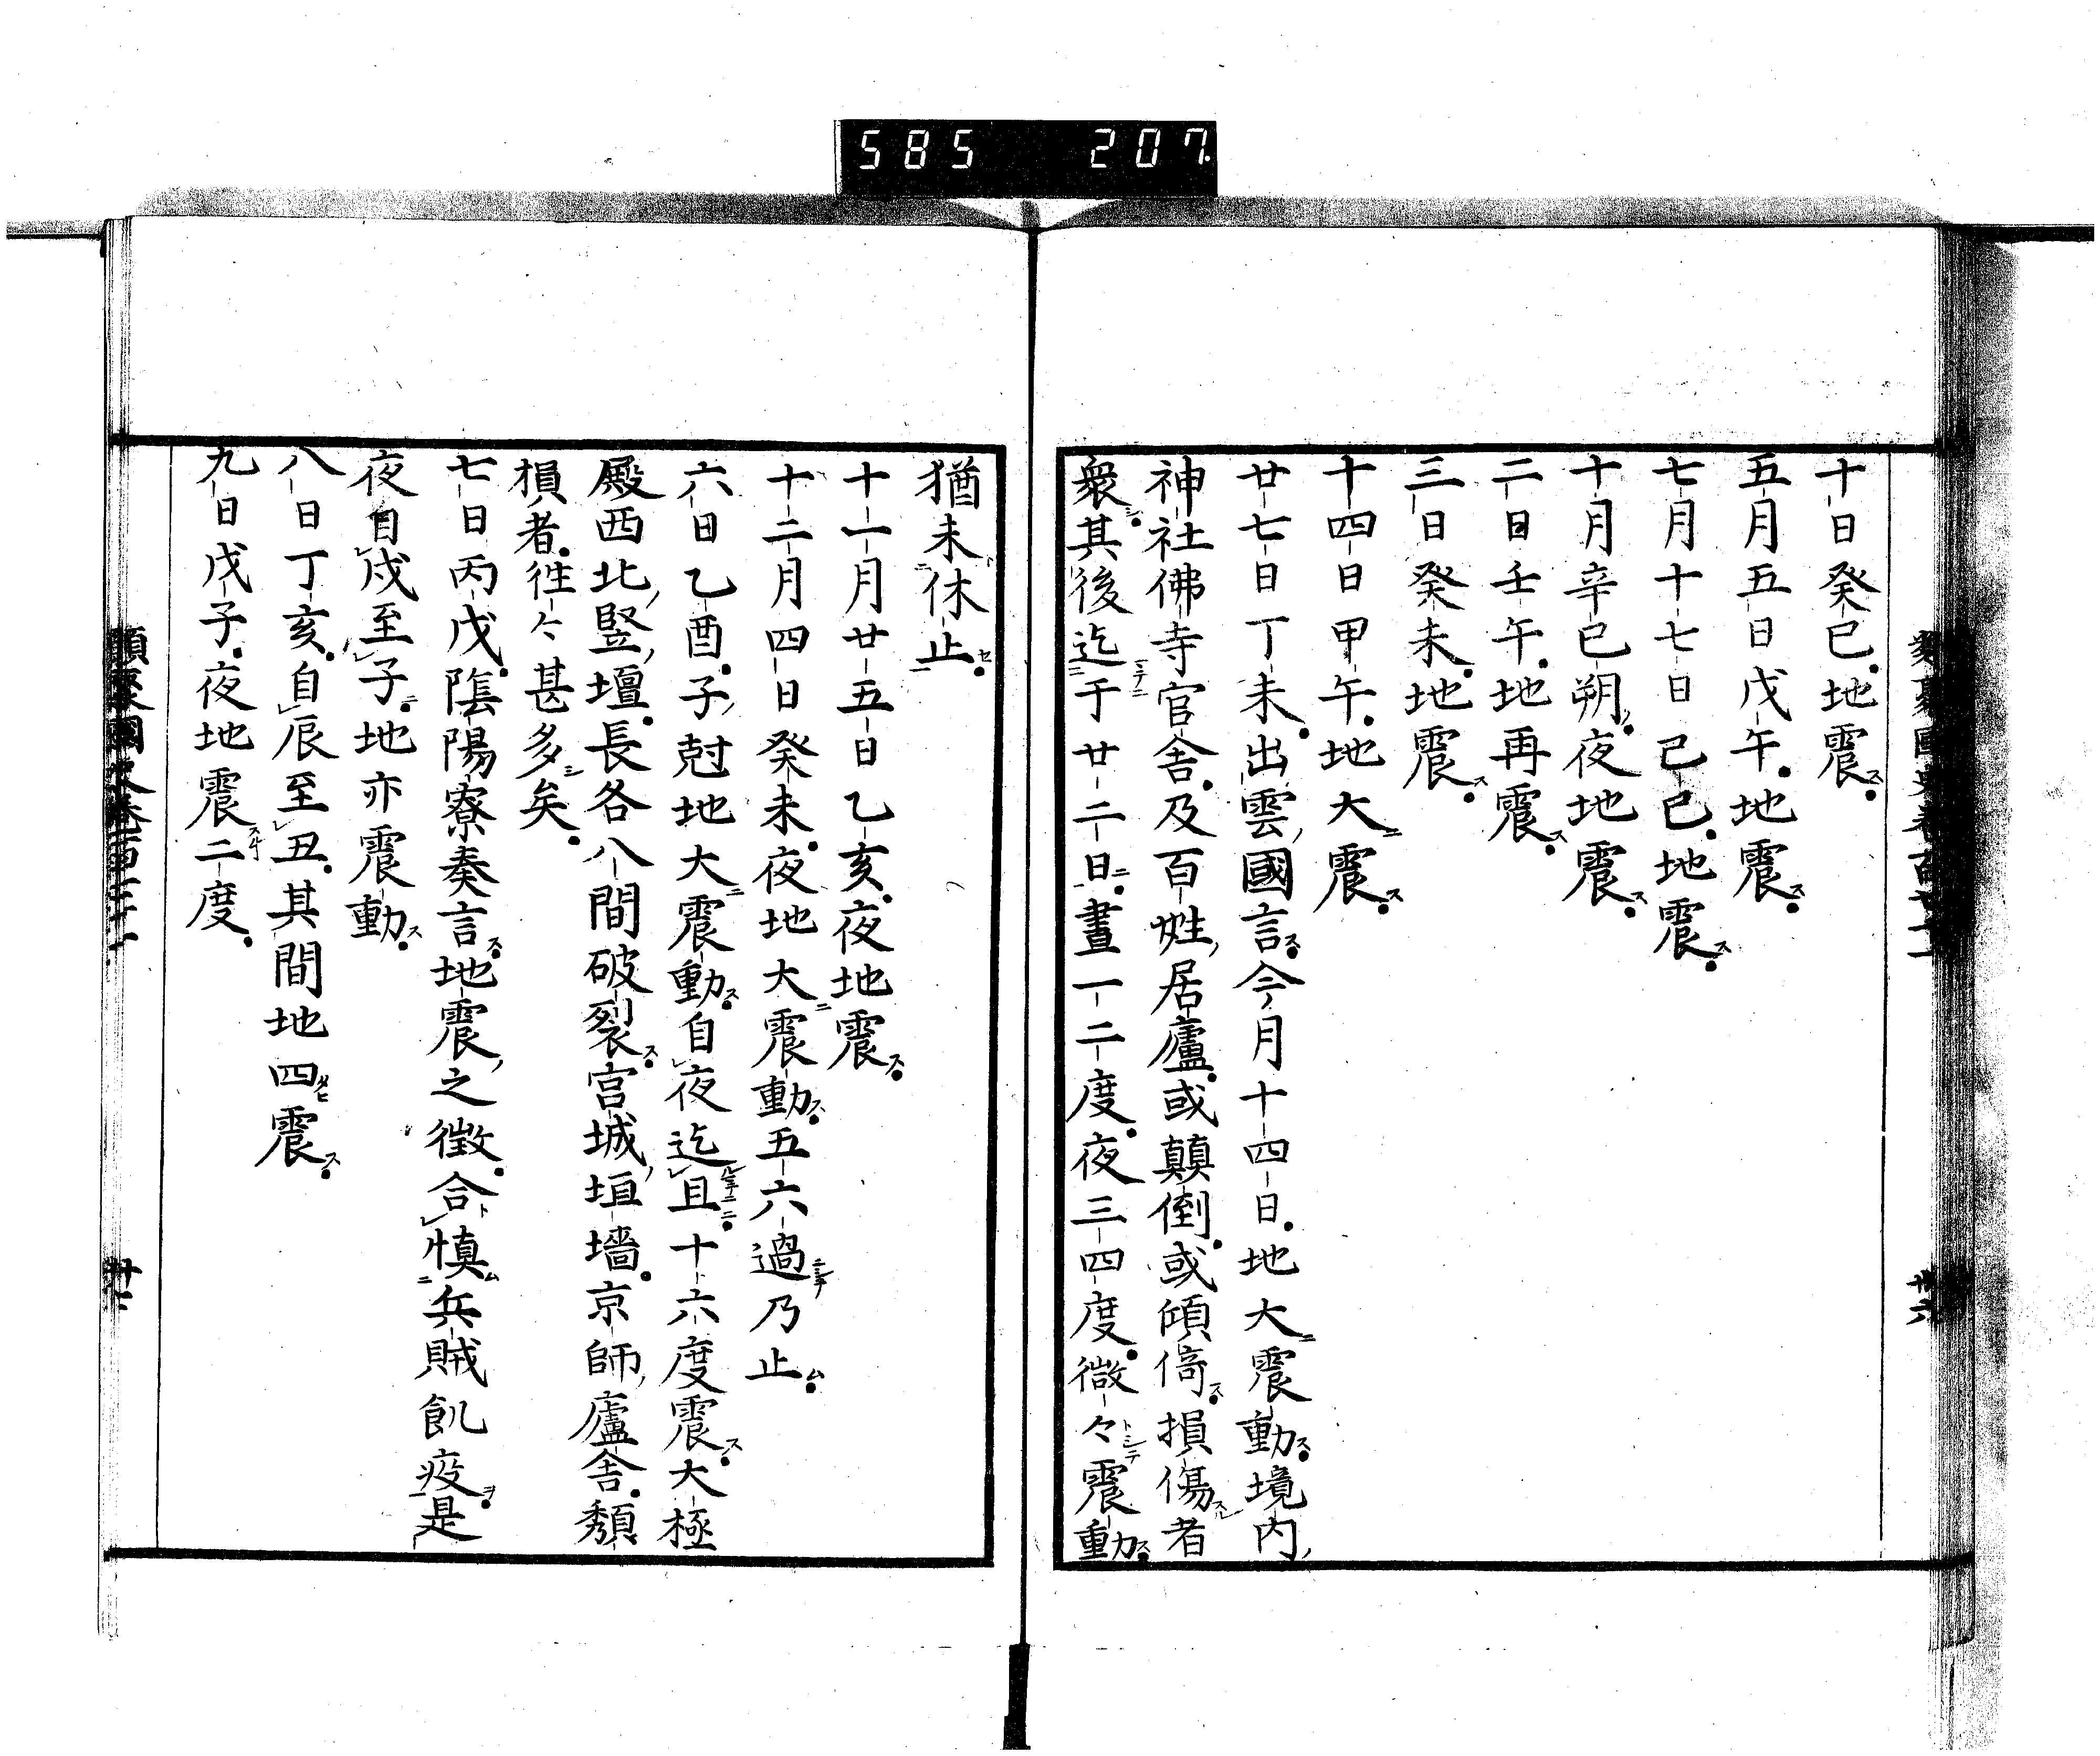 585 207
十日癸巳地震
五月五日戊午地震
七月十七日己巳地震
十月辛巳朔夜地震
二日壬午地再震
三日癸未地震
十四日甲午地大震
廿七日丁未出雲國言今月十四日地大震動境内
神社佛寺官舎及百姓居廬或顛倒或傾倚損傷者
衆其後迄于廿二日晝一二度夜三四度微々震動
猶未休止
十一月廿五日乙亥夜地震
十二月四日癸未夜地大震動五六過乃止
六日乙酉子尅地大震動自夜迄且十六度震大極
殿西北竪壇長各八間破裂宮城垣墻京師廬舎頽
損者徃々甚多矣
七日丙戊陰陽寮奏言地震之徴合慎兵賊飢疫是
夜自戍至子地亦震動
八日丁亥自辰至丑其間地四震
九日戊子夜地震二度